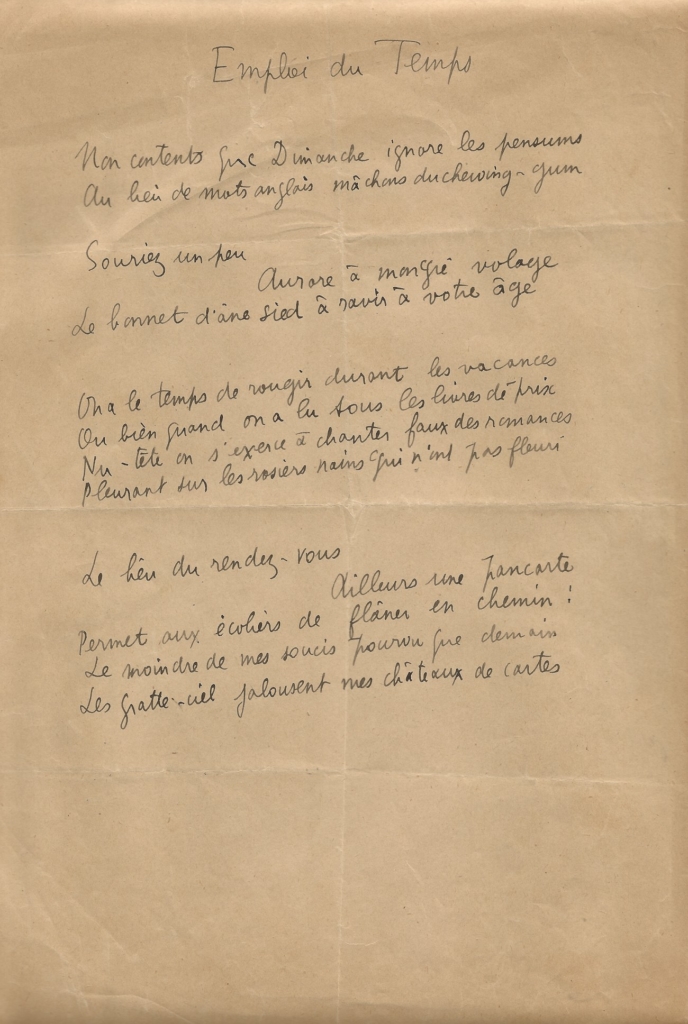 Emploi du Temps
Non contents que Dimanche ignore les pensums
Au lieu de mots anglais mâchons du chewing-gum
Souriez un peu
Aurore à
volage
Le bonnet d'âne sied à ravir à votre âge
On a le temps de rougir durant les vacances
Ou bien quand on a lu tous les livres de prix
Nu-tête on s'exerce à chanter faux des romances
Pleurant sur les rosiers nains qui n'ont pas fleuri
Le lieu du rendez-vous
Ailleurs une pancarte
Permet aux écoliers de flâner en chemin :
Le moindre de mes soucis pourvu que demain
Les gratte-ciel jalousent mes châteaux de cartes